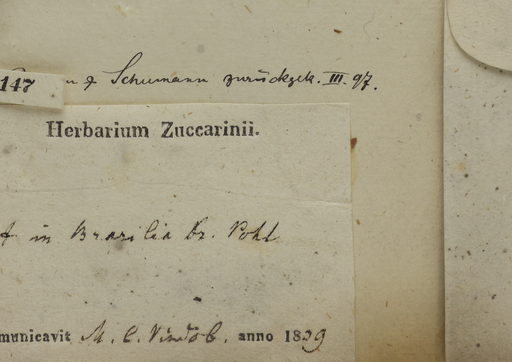 & Schumann zurückgek. III. 97.
147
Herbarium Zuccarinii.
in Brazilia Dr. Pohl
municavit M. C. Vindob. anno 1839